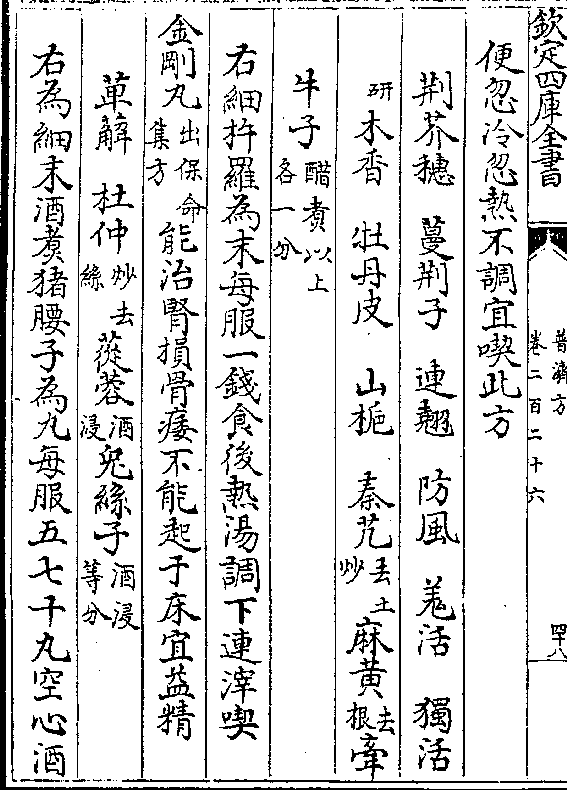 欽定四庫全書
普濟方
卷二百二十六
四十八
便忽冷忽熱不調宜喫此方
荆芥穗 蔓荆子 連翹 防風 羌活 獨活
研 木香 牡丹皮 山梔 秦艽去土炒 麻黃去根 牽
牛子醋煑以上各一分
右細杵羅為末每服一錢食後熱湯調下連滓喫
金剛丸出保命集方 能治腎損骨痿不能起于床宜益精
萆薢 杜仲炒去絲 蓯蓉酒浸 兎絲子酒浸等分
右為細末酒煑猪腰子為丸每服五七十丸空心酒